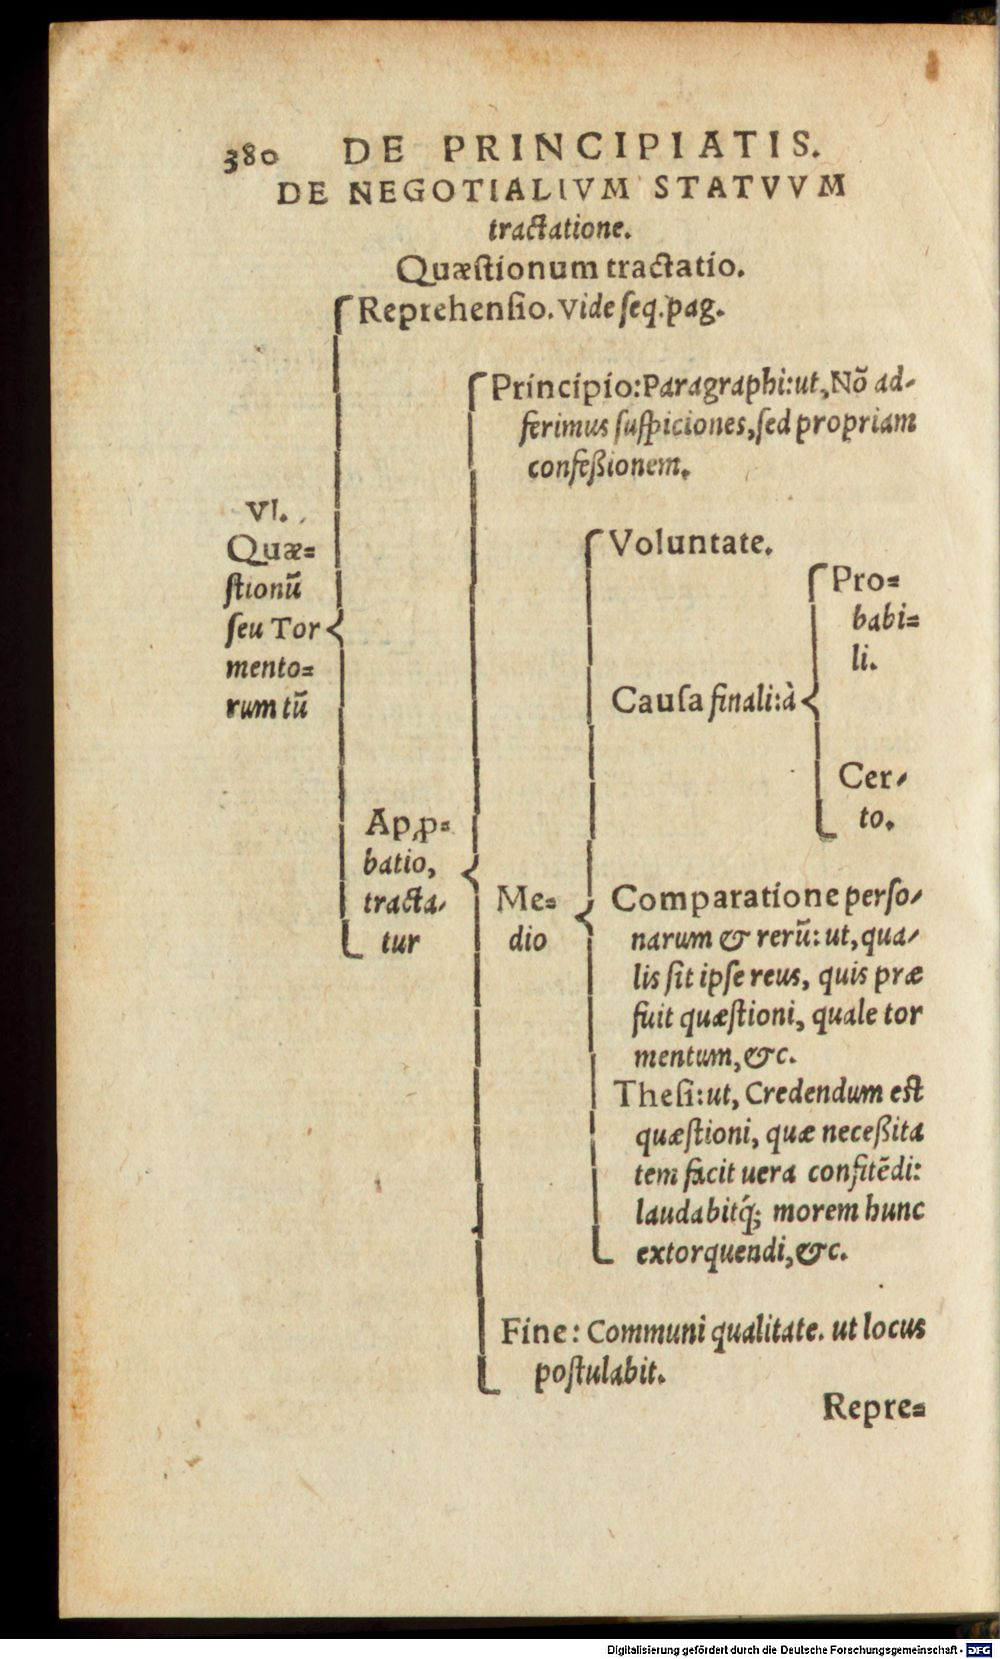 380 DE PRINCIPIATIS.
DE NEGOTIALIVM STATVVM
tractatione.
Quæſtionum tractatio.
Reprehenſio. Vide ſeq. pag.
Principio: Paragraphi: ut, Nõ ad-
ferimus ſuſpiciones, ſed propriam
confeßionem.
VI.
Quæ=
ſtionũ
ſeu Tor
mento=
rum tũ
Voluntate.
Pro=
babi=
li.
Cauſa finali: à
Cer-
to.
Apꝓ=
batio,
tracta-
tur
Me=
dio
Comparatione perſo-
narum & rerũ: ut, qua-
lis ſit ipſe reus, quis præ
fuit quæſtioni, quale tor
mentum, &c.
Theſi: ut, Credendum eſt
quæſtioni, quæ neceßita
tem facit uera confitẽdi:
laudabitq́; morem hunc
extorquendi, &c.
Fine: Communi qualitate. ut locus
poſtulabit.
Repre=
Digitalisierung gefördert durch die Deutsche Forschungsgemeinschaft - DFG